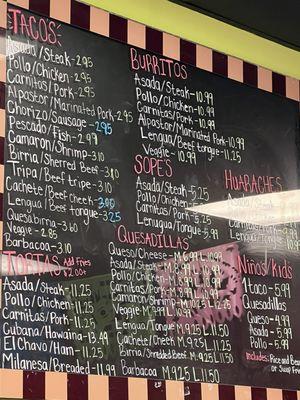 TACOS
Asada/Steak-2.95
Pollo/Chicken-2.95
Carnitas/Pork-2.95
Alpastor/Marinated Pork-2.95
Chorizo/Sausage-2.95
Pescado/Fish-2.99
Camaron/Shrimp-3.10
Birria/Shredded Beef-3.10
Tripa/Beef tripe-3.10
Cachete/Beef Cheek-3.00
Lengua/Beef tongue-3.25
Quesabirria-3.60
Veggie-2.85
Barbacoa-3.10
TORTAS Add Fries $2.00+
Asada/Steak-11.25
Pollo/Chicken-11.25
Carnitas/Pork-11.25
Cubana/Hawaiina-13.49
El Chavo/Ham-11.25
Milanesa/Breaded-11.95
BURRITOS
Asada/Steak-10.99
Pollo/Chicken-10.99
Carnitas/Pork-10.99
Alpastor/Marinated Pork-10.99
Lengua/Beef tongue-11.25
Veggie-10.99
SOPES
Asada/Steak-5.25
Pollo/Chicken-5.25
Carnitas/Pork-6.25
Lengua/Beef Tongue-5.99
QUESADILLAS
Queso/Cheese-M6.99 L9.99
Asada/Steak-M8.99 L10.99
Pollo/Chicken-M8.99 L10.99
Carnitas/Pork-M8.99 L10.99
Camaron/Shrimp-M9.25 L10.99
Veggie-M6.99 L10.99
Lengua/Tongue-M9.25 L11.50
Cachete/Cheek-M9.25 L11.50
Birria/Shredded Beef-M9.25 L11.50
Barbacoa M9.25 L11.50
HUARACHES
Asada/Steak-
Pollo/Chicken
Carnitas/Pork-
Lengua/Tongue-10.99
Niñas/Kids
1 Taco-5.99
Quesadillas
Queso-4.99
Asada-5.99
Pollo-5.99
Includes: Rice and Beans
or Swap Fries